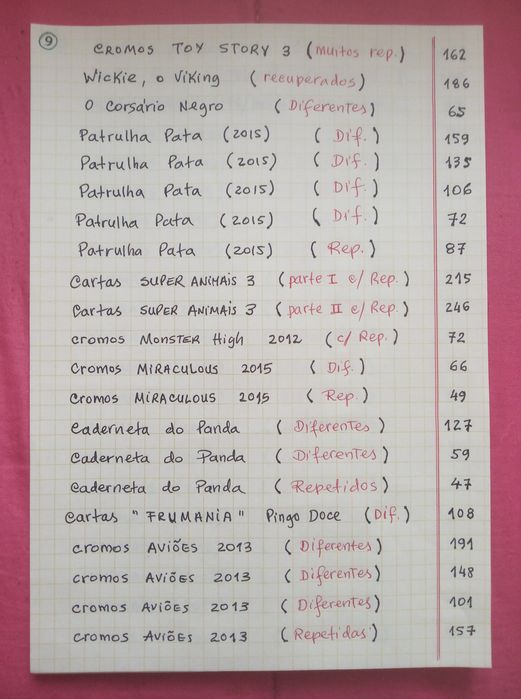 9
CROMOS TOY STORY 3 (muitos rep.) 162
Wickie, o Viking (recuperados) 186
O Corsário Negro (Diferentes) 65
Patrulha Pata (2015) (Dif.) 159
Patrulha Pata (2015) (Dif.) 135
Patrulha Pata (2015) (Dif.) 106
Patrulha Pata (2015) (Dif.) 72
Patrulha Pata (2015) (Rep.) 87
Cartas SUPER ANIMAIS 3 (parte I c/ Rep.) 215
Cartas SUPER ANIMAIS 3 (parte II c/ Rep.) 246
cromos MONSTER High 2012 (c/ Rep.) 72
Cromos MIRACULOUS 2015 (Dif.) 66
Cromos MIRACULOUS 2015 (Rep.) 49
Caderneta do Panda (Diferentes) 127
Caderneta do Panda (Diferentes) 59
Caderneta do Panda (Repetidos) 47
Cartas "FRUMANIA" Pingo Doce (Dif.) 108
cromos AVIÕES 2013 (Diferentes) 191
cromos AVIÕES 2013 (Diferentes) 148
cromos AVIÕES 2013 (Diferentes) 101
cromos AVIÕES 2013 (Repetidas) 157